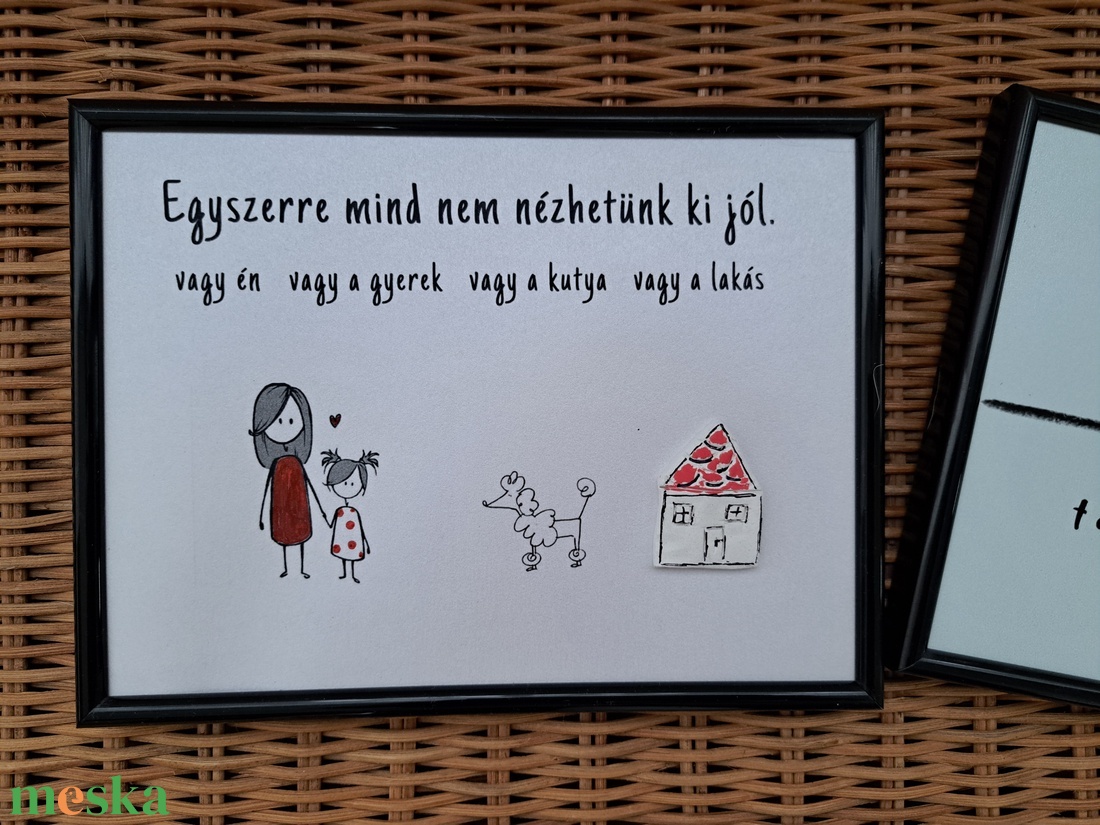 Egyszerre mind nem nézhetünk ki jól.
vagy én vagy a gyerek vagy a kutya vagy a lakás
meska